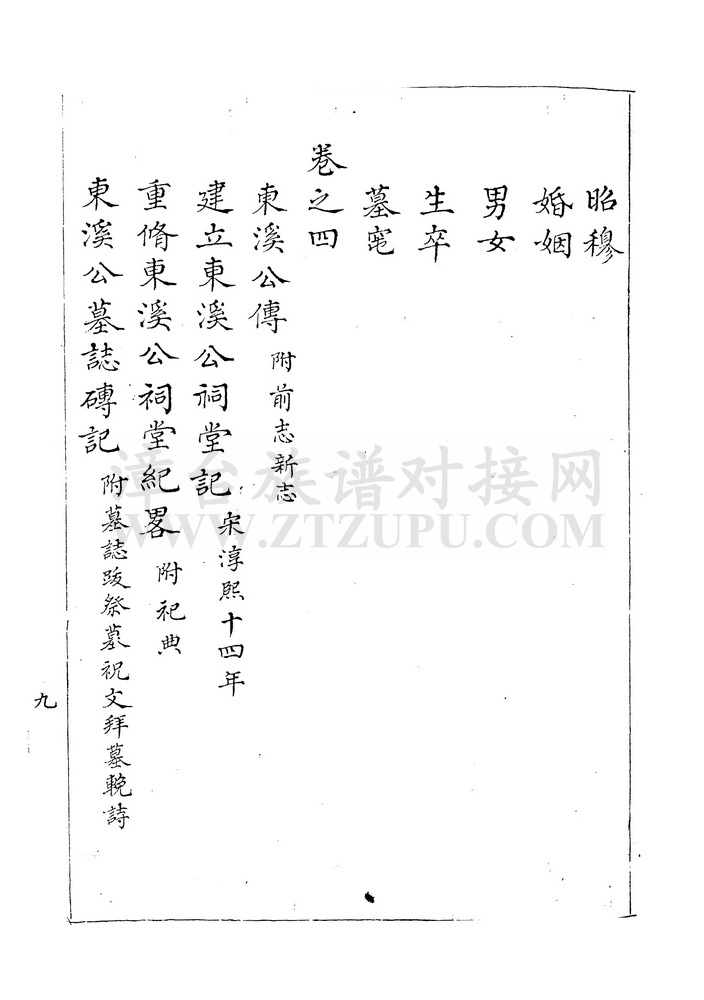 昭穆
婚姻
男女
生卒
墓窀
卷之四
東溪公傳 附前志新志
建立東溪公祠堂記 宋淳熙十四年
重脩東溪公祠堂紀畧 附祀典
東溪公墓誌磚記 附墓誌跋祭墓祝文拜墓輓詩
九
漳台族谱对接网
WWW.ZTZUPU.COM